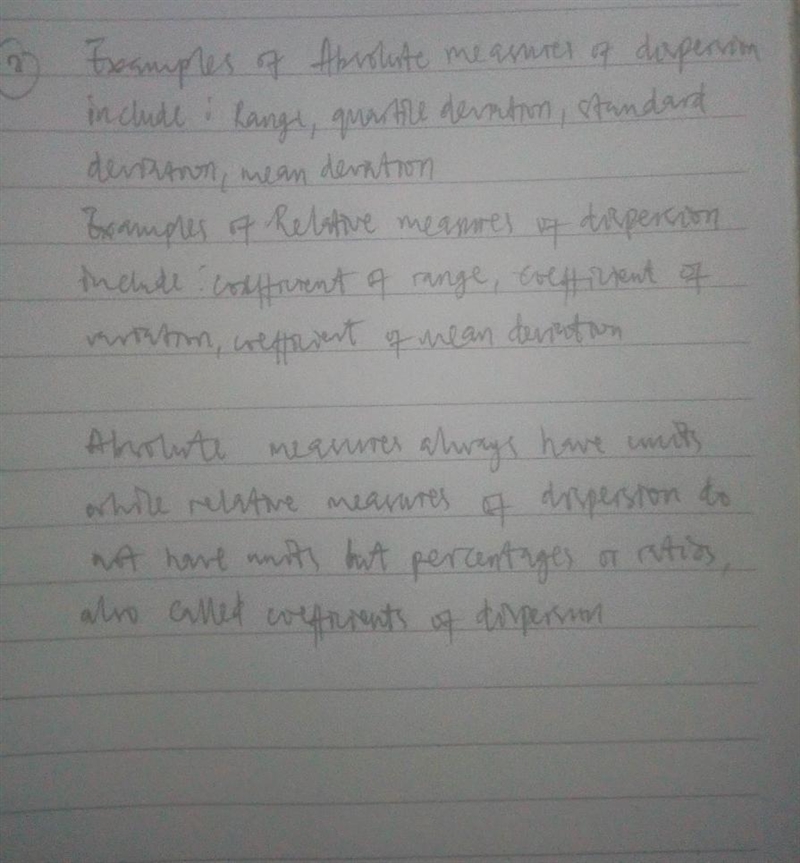 2 Examples of Absolute measures of dispersion
include : Range, quartile deviation, standard
deviation, mean deviation
Examples of Relative measures of dispersion
include : coefficient of range, coefficient of
variation, coefficient of mean deviation
Absolute measures always have units
while relative measures of dispersion do
not have units but percentages or ratios,
also called coefficients of dispersion